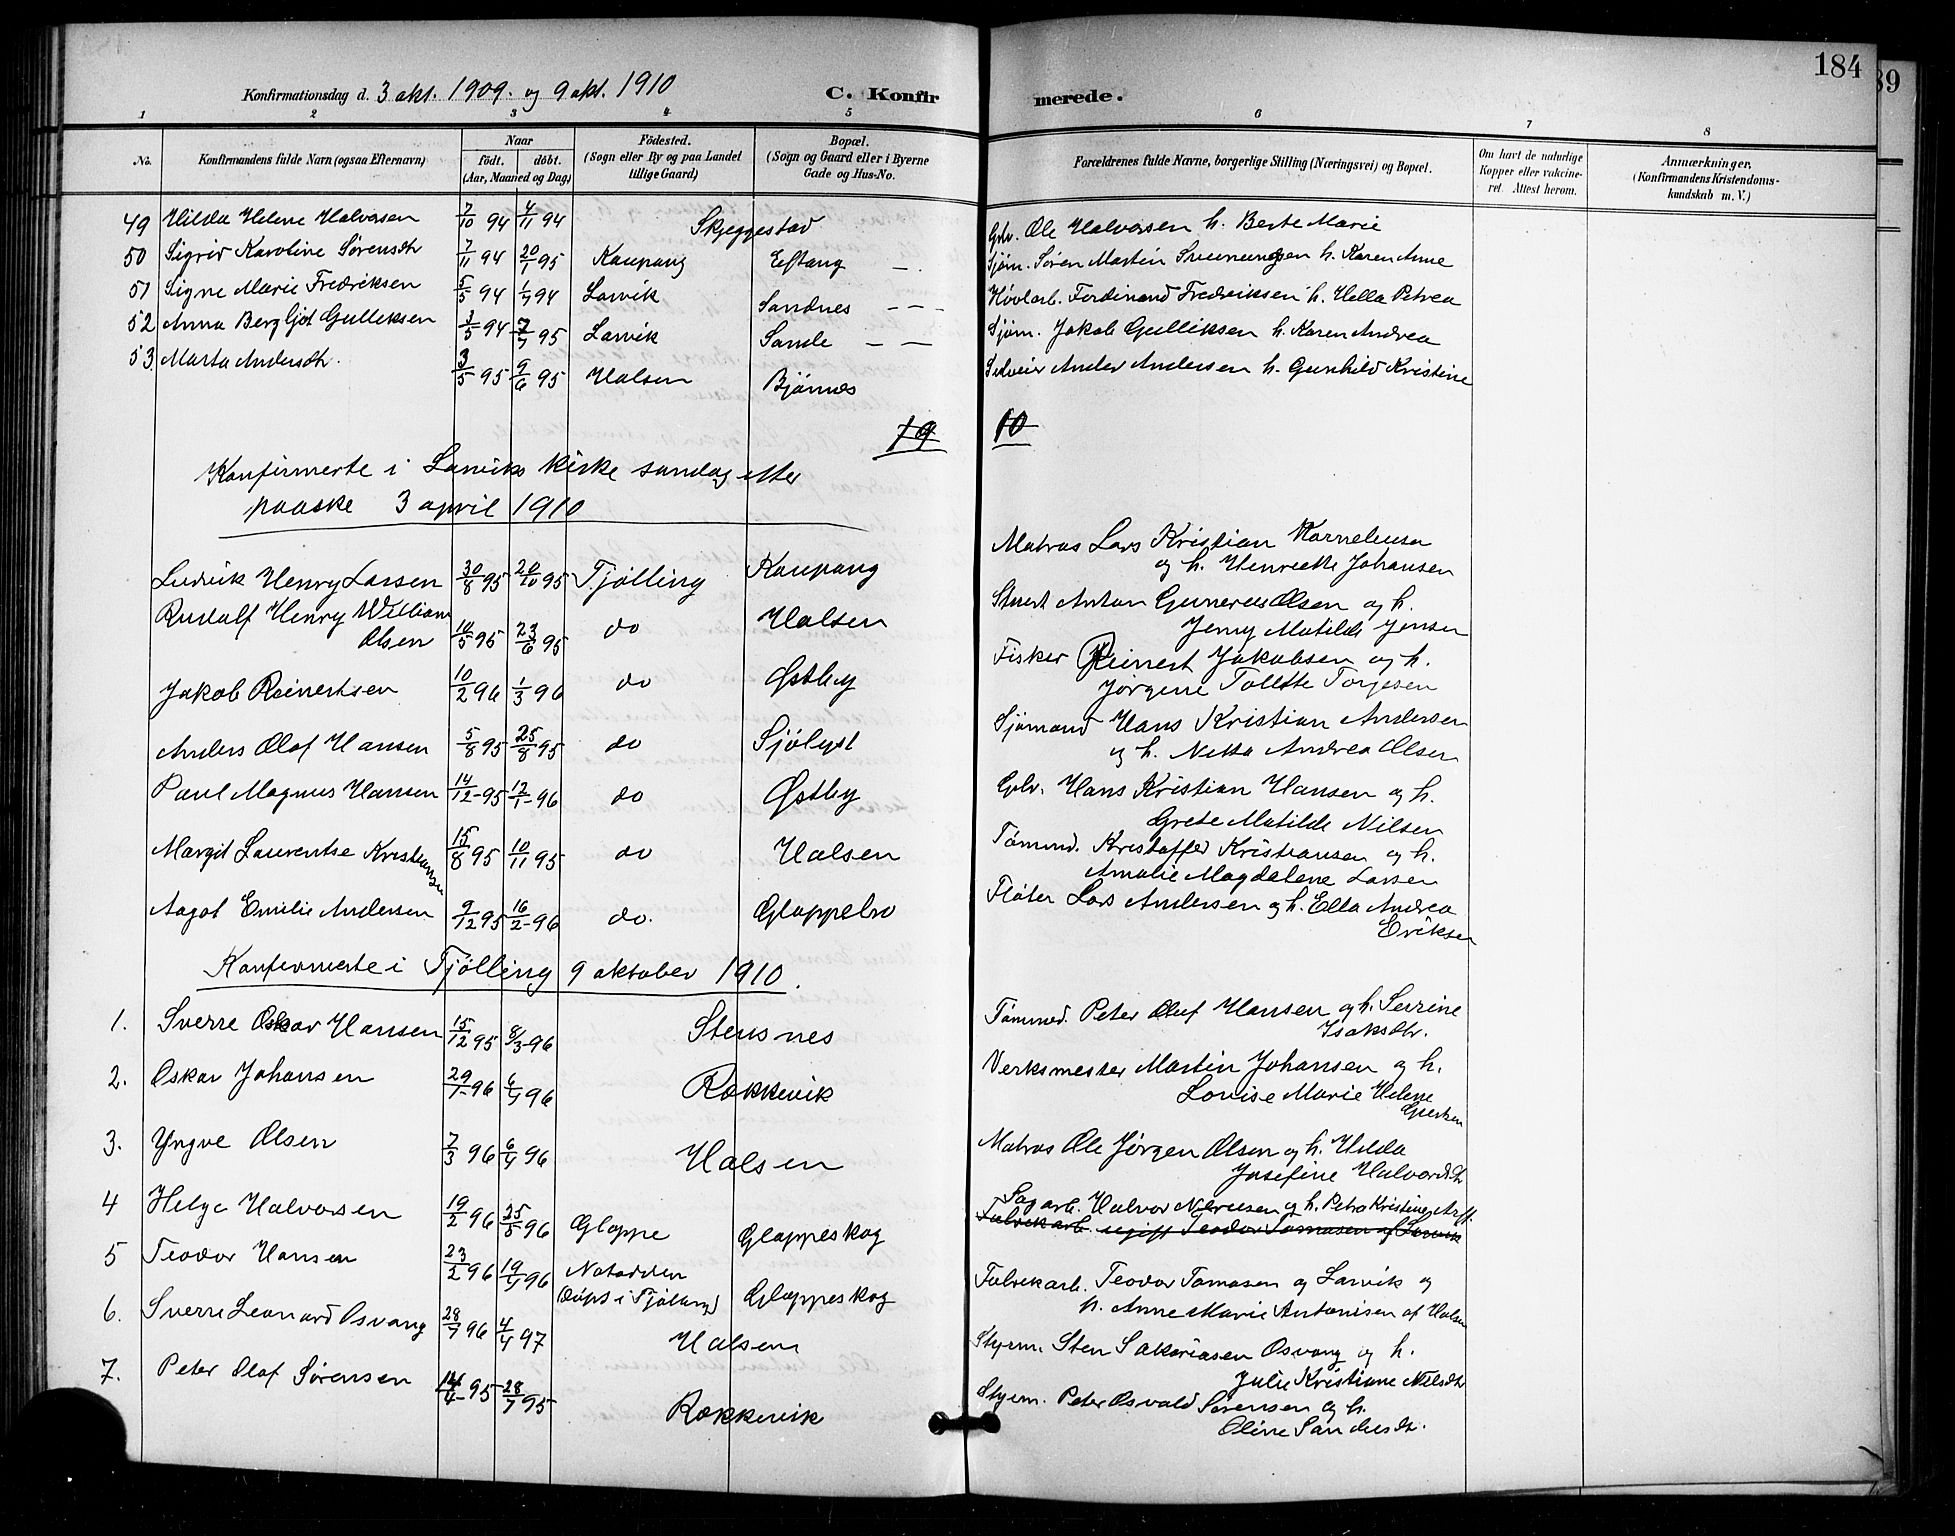 184
89
Konfirmationsdag d. 3 okt. 1909. og 9 okt. 1910
C. Konfirmerede.
1 2 3 4 5 6 7 8
No.
Konfirmandens fulde Navn (ogsaa Efternavn)
Naar
födt. döbt.
(Aar, Maaned og Dag)
Födested.
(Sogn eller By og paa Landet
tillige Gaard)
Bopæl.
(Sogn og Gaard eller i Byerne
Gade og Hus-No.
Forældrenes fulde Navne, borgerlige Stilling (Næringsvei) og Bopæl.
Om havt de naturlige
Kopper eller vaccine-
ret. Attest herom.
Anmærkninger.
(Konfirmandens Kristendoms-
kundskab m. V.)
49 Hilda Helene Halvorsen 7/10 94 4/11 94 Skjeggestad Gbr. Ole Halvorsen h. Berte Marie
50 Sigrid Karoline Sørensdtr 7/11 94 20/1 95 Kaupang Eftang — Sjøm. Søren Martin h. Karen Anne
51 Signe Marie Fredriksen 5/5 94 1/7 94 Larvik Sandnes — — Høvlarb. Ferdinand Fredriksen h. Hella Petrea
52 Anna Bergljot Gulliksen 3/5 94 7/7 95 Larvik Sande — — Sjøm. Jakob Gulliksen h. Karen Andrea
53 Marta Andersdtr. 3/5 95 9/6 95 Halsen Bjönnes Anders Andersen h. Gunhild Kristine
19 10
Konfirmerte i Larviks kirke søndag efter
paaske 3 april 1910
Ludvik Henry Larsen 30/8 95 20/10 95 Tjølling Kaupang Matros Lars Kristian Kornelius
og h. Henriette Johansen
Rudolf Henry William
Olsen 10/5 95 23/6 95 do Halsen Stuert Anton Gunerius Olsen og h.
Jenny Matilde Jensen
Jakob Reinertsen 10/2 96 1/3 96 do Østby Fisker Reinert Jakobsen og h.
Jørgine Tollette Torjesen
Anders Olaf Hansen 5/8 95 25/8 95 do Sjølyst Sjømand Hans Kristian Andersen
og h. Netta Andrea Olsen
Paul Magnus Hansen 14/12-95 12/1-96 do Østby Gbr. Hans Kristian Hansen og h.
Grete Matilde Nilsen
Margit Laurentse Kristiansen 15/8 95 10/11 95 do Halsen Tömmd. Kristoffer Kristiansen og h.
Amalie Magdalene Larsen
Aagot Emilie Andersen 9/12 95 16/2-96 do. Gloppebro Fløter Lars Andersen og h. Ella Andrea
Eriksen
Konfirmerte i Tjølling 9 oktober 1910.
1. Sverre Oskar Hansen 15/12 95 8/3-96 Stensnes Tömmed. Peter Oluf Hansen og h. Serine
Isaksdtr.
2. Oskar Johansen 29/1-96 6/4 96 Rækkevik Verksmester Martin Johansen og h.
Louise Marie Helene
3. Yngve Olsen 7/3 96 6/4 96 Halsen Matros Ole Jørgen Olsen og h. Hilda
Josefine Halvordtr
4 Helge Halvorsen 19/2 96 25/5 96 Gloppe Gloppeskog Sagarb. Halvor h. Petra Kristine
Fabrikarb. ugift Teodor Tomasen af Larvik
5 Teodor Hansen 23/2 96 19/4 96 Notodden
(Döpt i Tjölling) Gloppeskog Fabrikarb. Teodor Tomasen og Larvik og
p. Anne Marie Antonisen af Halsen
6. Sverre Leonard Osvang 28/7 96 4/4 97 Halsen Styrm. Sten Sakariasen Osvang og h.
Julie Kristiane Nilsdtr
7. Peter Olaf Sørensen 14/4-95 28/7 95 Rækkevik Styrm. Peter Osvald Sørensen og h.
Oline